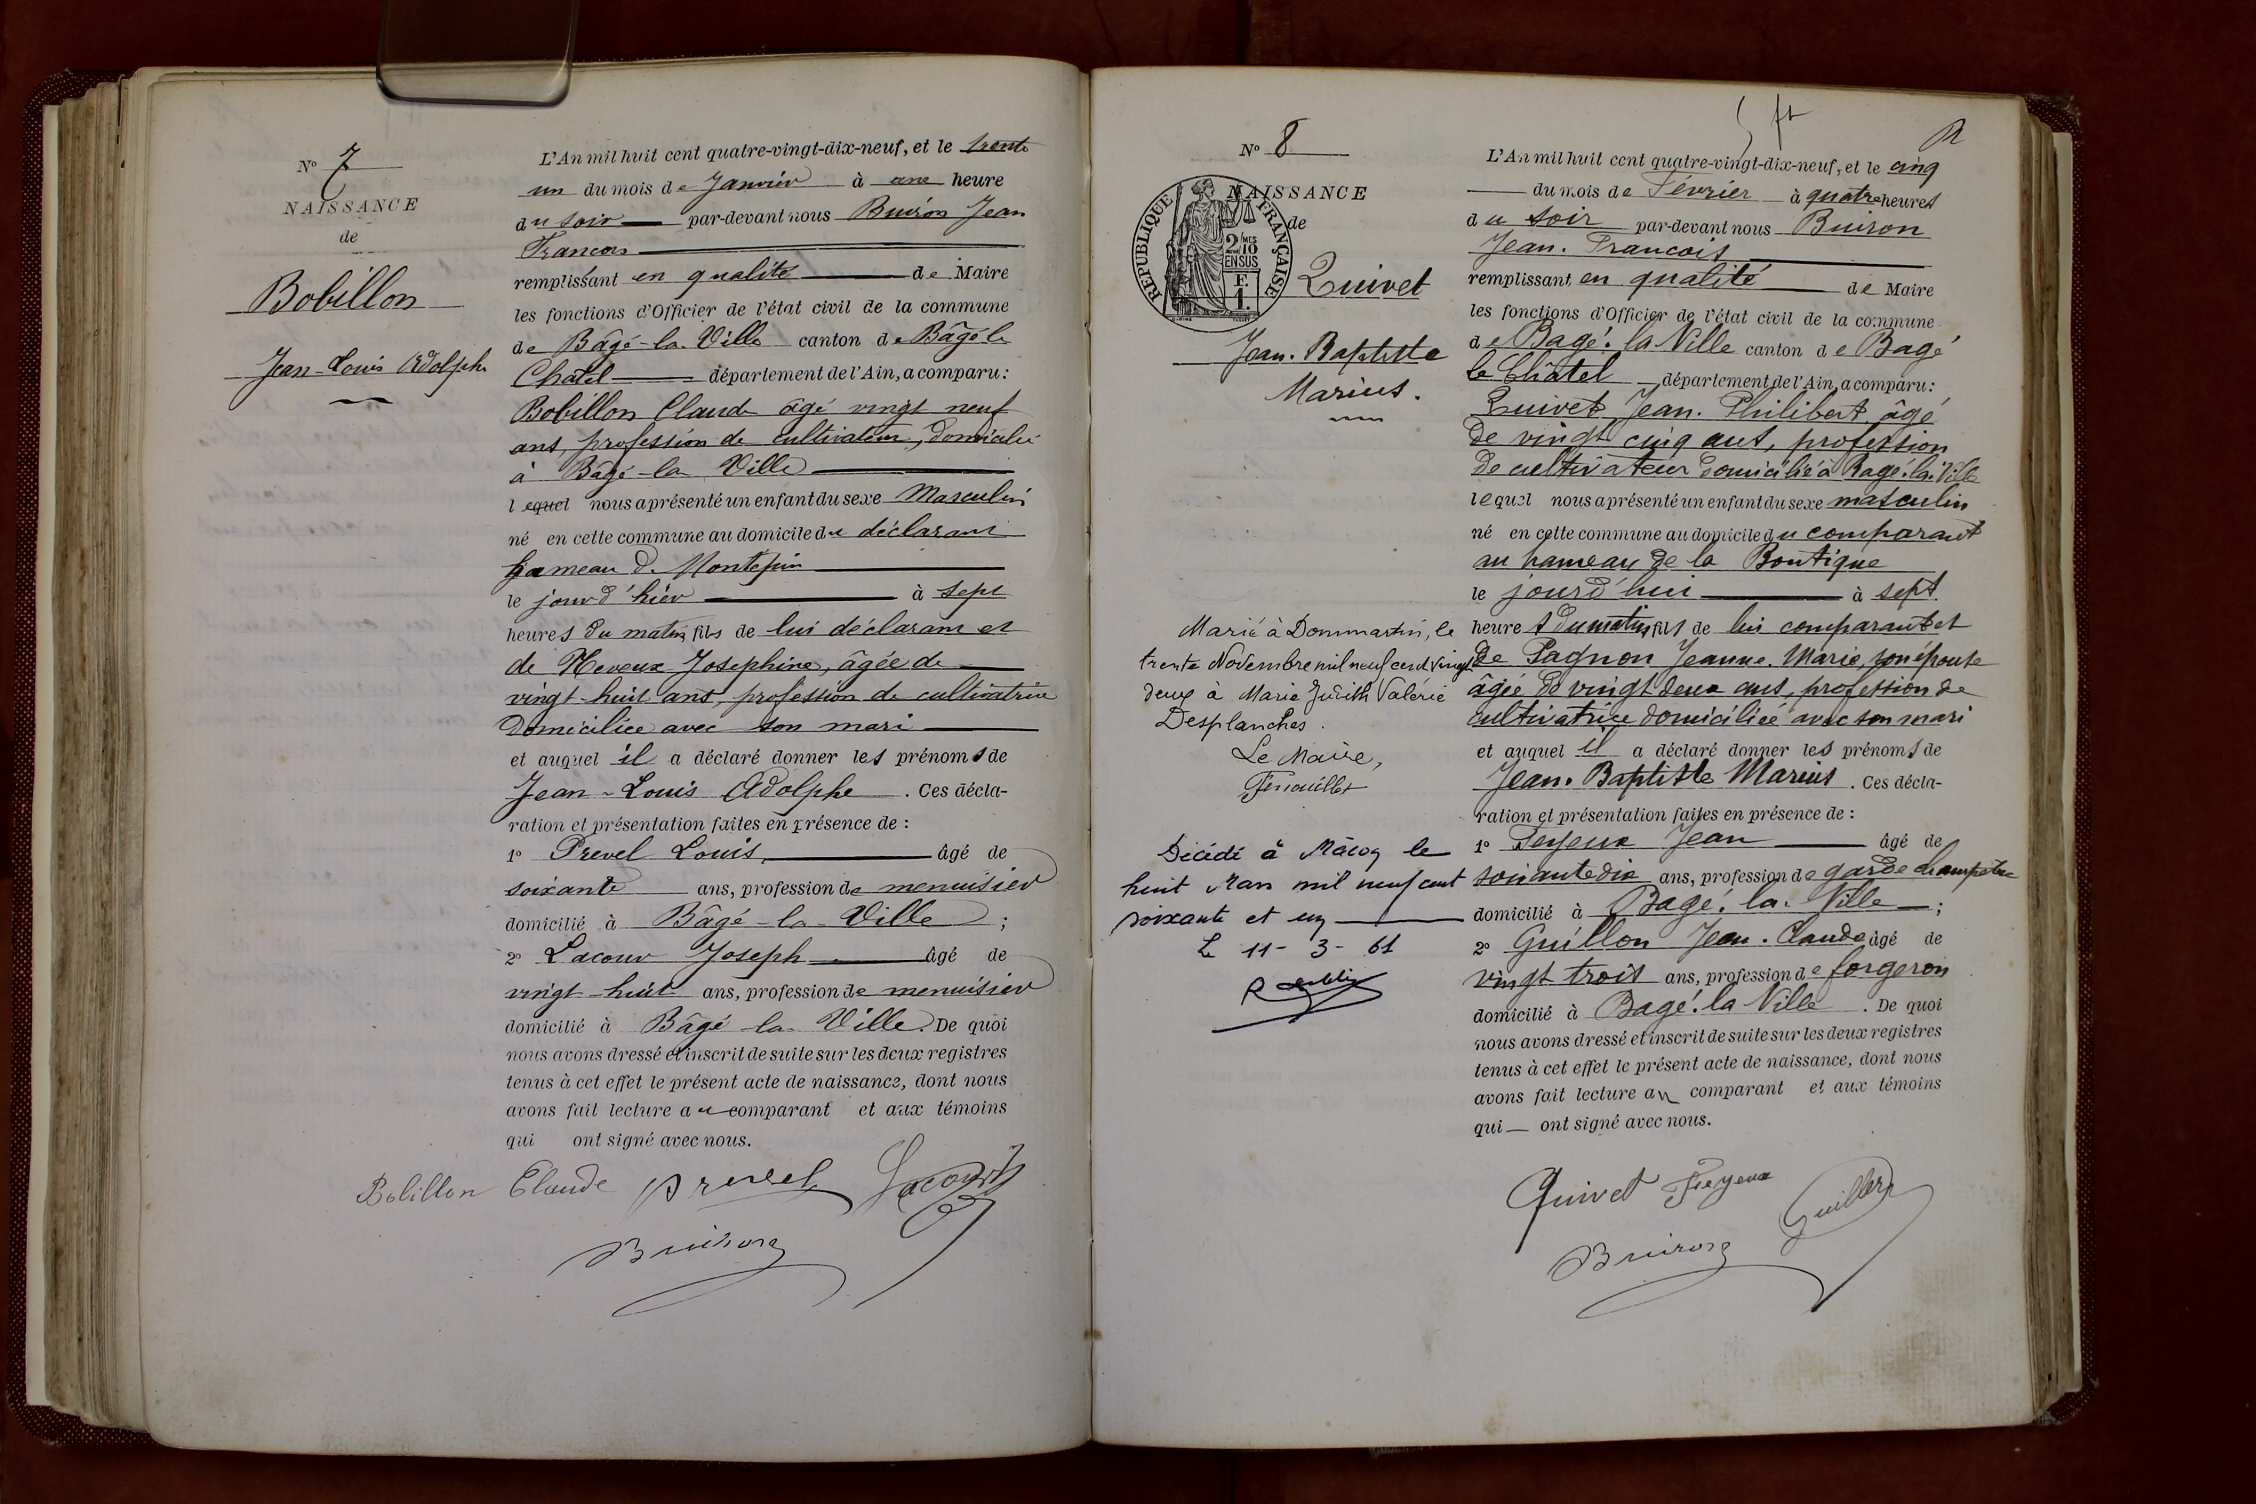 N° 7
NAISSANCE
de
Bobillon
Jean-Louis Adolphe
L'An mil huit cent quatre-vingt-dix-neuf, et le trente
un du mois de Janvier à une heure
du soir par-devant nous Buiron Jean
Francois
remplissant en qualité de Maire
les fonctions d'Officier de l'état civil de la commune
de Bâgé-la-Ville canton de Bâgé le
Chatel département de l'Ain, a comparu:
Bobillon Claude âgé vingt neuf
ans, profession de cultivateur, domicilié
à Bâgé-la Ville
lequel nous a présenté un enfant du sexe Masculin
né en cette commune au domicile du déclarant
hameau de Montepin
le jour d'hier à sept
heures du matin fils de lui déclarant et
de Neveux Josephine, âgée de
vingt-huit ans, profession de cultivatrice
domiciliée avec son mari
et auquel il a déclaré donner les prénoms de
Jean-Louis Adolphe. Ces décla-
ration et présentation faites en présence de :
1° Prevel Louis, âgé de
soixante ans, profession de menuisier
domicilié à Bâgé-la-Ville ;
2° Lacour Joseph âgé de
vingt-huit ans, profession de menuisier
domicilié à Bâgé-la-Ville. De quoi
nous avons dressé et inscrit de suite sur les deux registres
tenus à cet effet le présent acte de naissance, dont nous
avons fait lecture au comparant et aux témoins
qui ont signé avec nous.
Bobillon Claude Prevel Lacour
Buiron
N° 8
NAISSANCE
de
REPUBLIQUE FRANÇAISE
2/10 MES
EN SUS
F.
1.
Quivet
Jean. Baptiste
Marius.
Marié à Dommartin, le
trente Novembre mil neuf cent vingt
deux à Marie Judith Valérie
Desplanches.
Le Maire,
Fenouillet
Décédé à Mâcon le
huit Mars mil neuf cent
soixante et un
Le 11-3-61
L'An mil huit cent quatre-vingt-dix-neuf, et le cinq
du mois de Février à quatre heures
du soir par-devant nous Buiron
Jean. Francois
remplissant en qualité de Maire
les fonctions d'Officier de l'état civil de la commune
de Bagé. la Ville canton de Bagé
le Châtel département de l'Ain, a comparu:
Quivet Jean. Philibert âgé
de vingt cinq ans, profession
de cultivateur domicilié à Bagé. la. Ville
lequel nous a présenté un enfant du sexe masculin
né en cette commune au domicile du comparant
au hameau de la Boutique
le jourd'hui à sept
heures du matin fils de lui comparant et
de Pagnon Jeanne. Marie, son épouse
âgée de vingt deux ans, profession de
cultivatrice domiciliée avec son mari
et auquel il a déclaré donner les prénoms de
Jean. Baptiste Marius. Ces décla-
ration et présentation faites en présence de :
1° Feyeux Jean âgé de
soixante dix ans, profession de garde champetre
domicilié à Bagé. la. Ville ;
2° Guillon Jean. Claude âgé de
vingt trois ans, profession de forgeron
domicilié à Bagé. la Ville. De quoi
nous avons dressé et inscrit de suite sur les deux registres
tenus à cet effet le présent acte de naissance, dont nous
avons fait lecture au comparant et aux témoins
qui ont signé avec nous.
Quivet Feyeux Guillon
Buiron